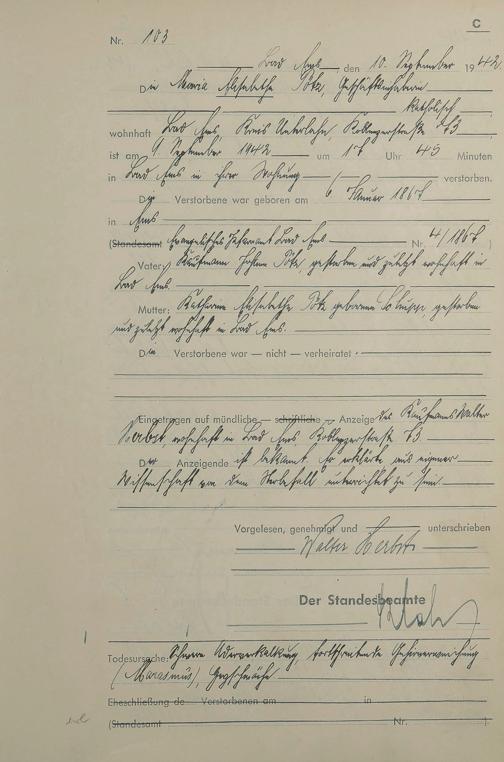 C
Nr. 103
Bad Ems, den 10. September 1942.
Die Maria Elisabethe Götz, Geschäftsinhaberin
katholisch
wohnhaft Bad Ems, Kreis Unterlahn, Koblenzerstraße 73
ist am 9. September 1942 um 17 Uhr 45 Minuten
in Bad Ems in ihrer Wohnung verstorben.
Die Verstorbene war geboren am 6. Januar 1867
in Ems
(Standesamt Evangelisches Pfarramt Bad Ems Nr. 4/1867)
Vater: Kaufmann Götz, gestorben und zuletzt wohnhaft in
Bad Ems
Mutter: Katharina Elisabethe Götz geborene gestorben
und zuletzt wohnhaft in Bad Ems.
Die Verstorbene war — nicht — verheiratet
Eingetragen auf mündliche — schriftliche — Anzeige des Kaufmanns Walter
Herbst, wohnhaft in Bad Ems, Koblenzerstraße 73
Der Anzeigende ist bekannt, er erklärte aus eigener
Wissenschaft von dem Sterbefall unterrichtet zu sein.
Vorgelesen, genehmigt und unterschrieben
Walter Herbst
Der Standesbeamte
Todesursache: Schwere Aderverkalkung, fortschreitende Gehirnerweichung
(Marasmus), Herzschwäche
Eheschließung de Verstorbenen am in
(Standesamt Nr. )